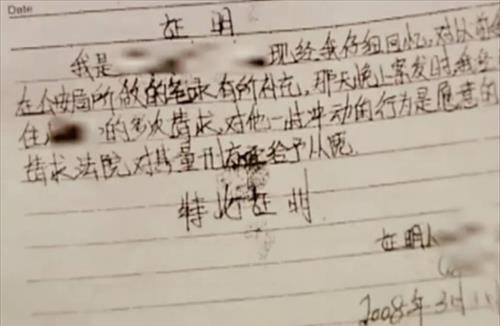 Date
证明
我是 现经我仔细回忆,对从前
在公安局所做的笔录有所补充,那天晚上案发时,我
住 的多次请求,对他一时冲动的行为是愿意的
请求法院对其量刑 给予从宽.
特此证明
证明人
2008年3月11